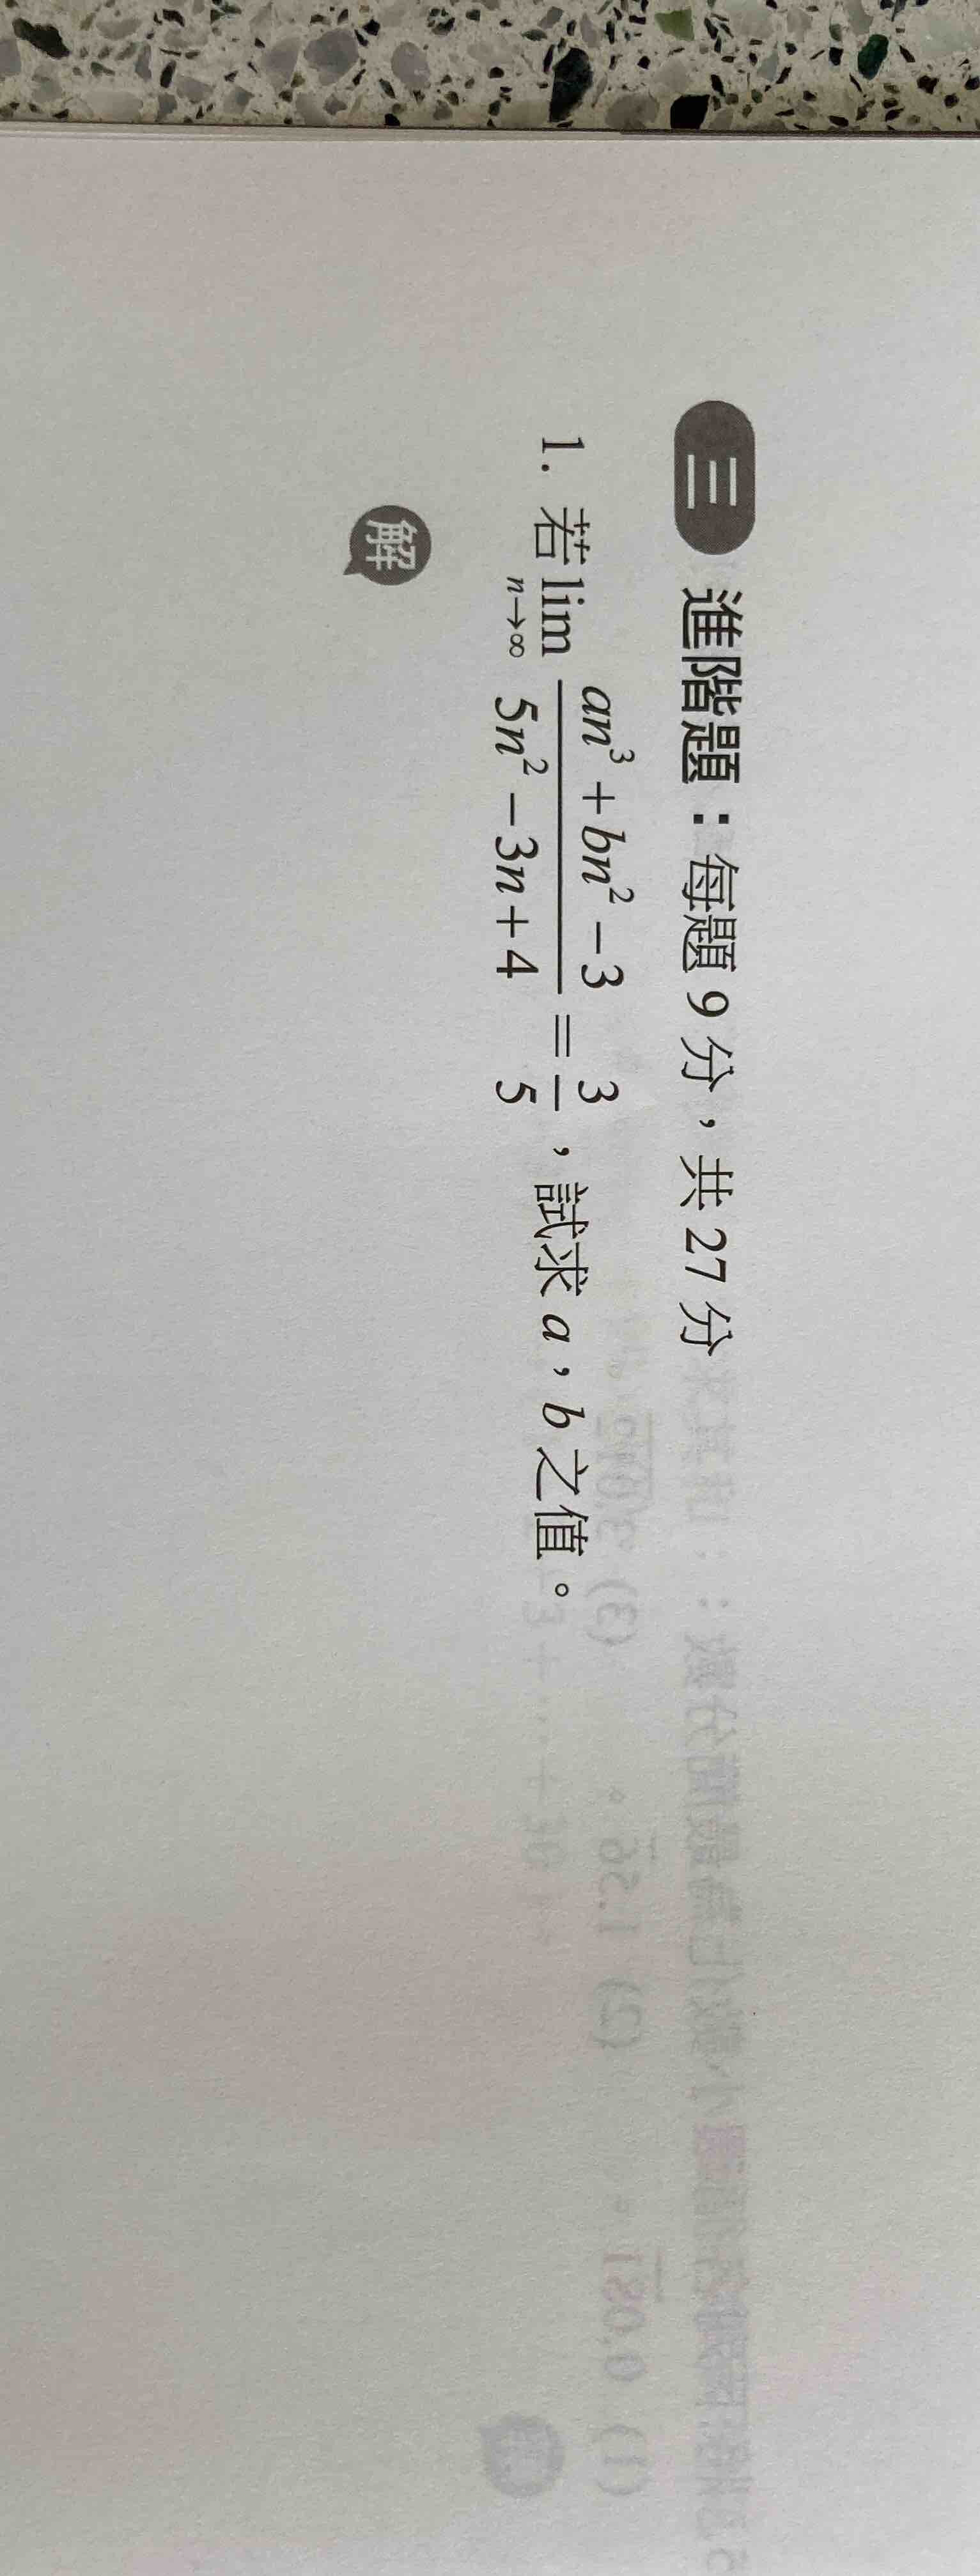 三 進階題：每題 9 分，共 27 分
1. 若 lim n→∞ (an³ + bn² − 3)/(5n² − 3n + 4) = 3/5，試求 a，b 之值。
解